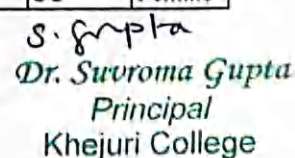 S. Gupta
Dr. Suvroma Gupta
Principal
Khejuri College